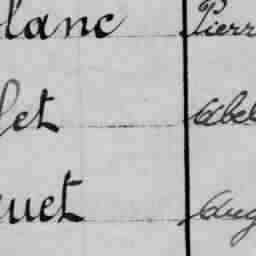 lanc Pierr
let Abel
uet Aug